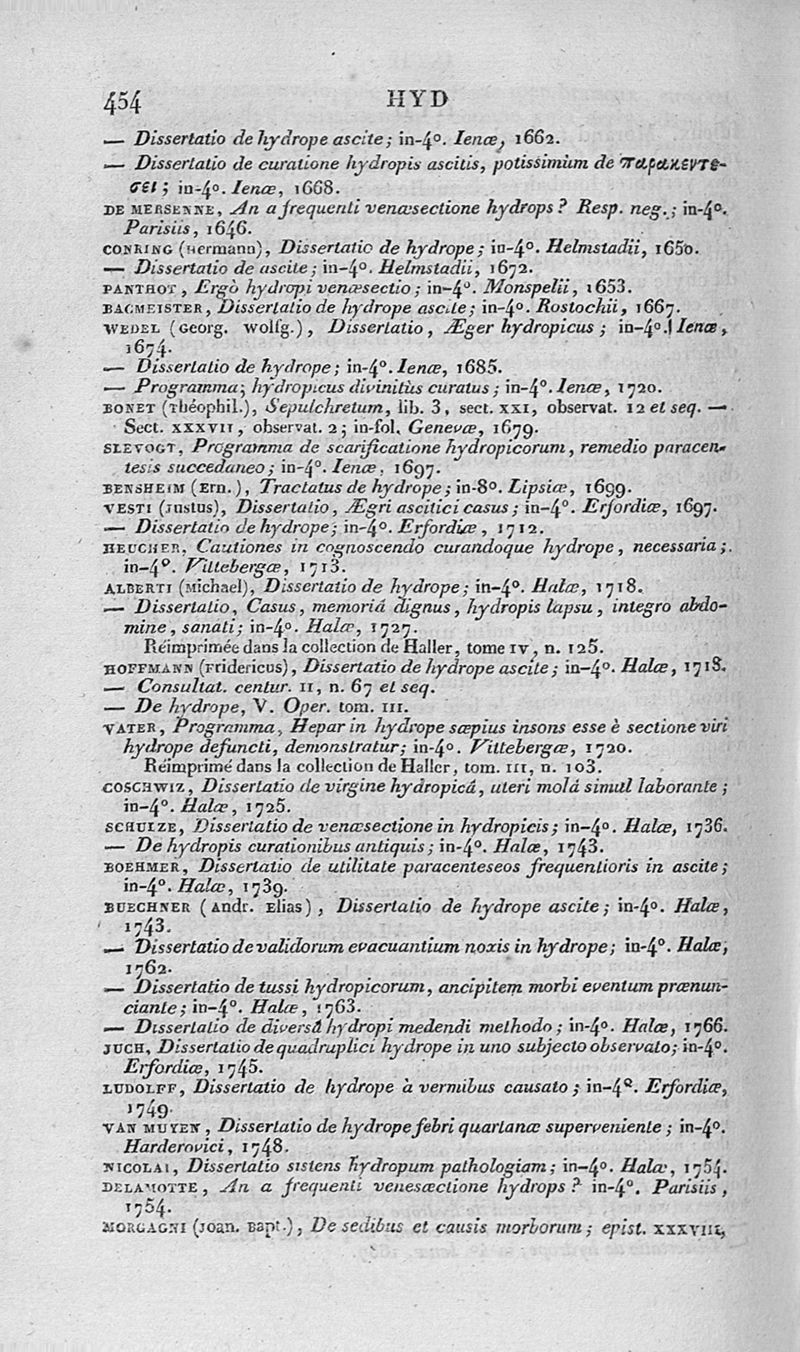 454 HYD
— Dissertatio de hydrope ascite; in-4°. Ienæ, 1662.
— Dissertatio de curatione hydropis ascitis, potissimùm de παρακεντε-
σει; in-4°. Ienæ, 1668.
DE MERSENNE, An a frequenti venæsectione hydrops? Resp. neg.; in-4°.
Parisiis, 1646.
CONRING (Hermann), Dissertatio de hydrope; in-4°. Helmstadii, 1650.
— Dissertatio de ascite; in-4°. Helmstadii, 1672.
PANTHOT, Ergò hydropi venæsectio; in-4°. Monspelii, 1653.
BACMEISTER, Dissertatio de hydrope ascite; in-4°. Rostochii, 1667.
WEDEL (Georg. Wolfg.), Dissertatio, Æger hydropicus; in-4°. Ienæ,
1674.
— Dissertatio de hydrope; in-4°. Ienæ, 1685.
— Programma; hydropicus divinitùs curatus; in-4°. Ienæ, 1720.
BONET (Théophil.), Sepulchretum, lib. 3, sect. XXI, observat. 12 et seq. —
Sect. XXXVII, observat. 2; in-fol. Genevæ, 1679.
SLEVOGT, Programma de scarificatione hydropicorum, remedio paracen-
tesis succedaneo; in-4°. Ienæ, 1697.
BENSHEIM (Ern.), Tractatus de hydrope; in-8°. Lipsiæ, 1699.
VESTI (Justus), Dissertatio, Ægri ascitici casus; in-4°. Erfordiæ, 1697.
— Dissertatio de hydrope; in-4°. Erfordiæ, 1712.
HEUCHER, Cautiones in cognoscendo curandoque hydrope, necessaria;
in-4°. Vittebergæ, 1713.
ALBERTI (Michael), Dissertatio de hydrope; in-4°. Halæ, 1718.
— Dissertatio, Casus, memoriâ dignus, hydropis lapsu, integro abdo-
mine, sanati; in-4°. Halæ, 1727.
Réimprimée dans la collection de Haller, tome IV, n. 125.
HOFFMANN (Fridericus), Dissertatio de hydrope ascite; in-4°. Halæ, 1718.
— Consultat. centur. II, n. 67 et seq.
— De hydrope, V. Oper. tom. III.
VATER, Programma, Hepar in hydrope sæpius insons esse è sectione viri
hydrope defuncti, demonstratur; in-4°. Vittebergæ, 1720.
Réimprimé dans la collection de Haller, tom. III, n. 103.
COSCHWIZ, Dissertatio de virgine hydropicâ, uteri molâ simul laborante;
in-4°. Halæ, 1725.
SCHULZE, Dissertatio de venæsectione in hydropicis; in-4°. Halæ, 1736.
— De hydropis curationibus antiquis; in-4°. Halæ, 1743.
BOEHMER, Dissertatio de utilitate paracenteseos frequentioris in ascite;
in-4°. Halæ, 1739.
BUECHNER (Andr. Elias), Dissertatio de hydrope ascite; in-4°. Halæ,
1743.
— Dissertatio de validorum evacuantium noxis in hydrope; in-4°. Halæ,
1762.
— Dissertatio de tussi hydropicorum, ancipitem morbi eventum prænun-
ciante; in-4°. Halæ, 1763.
— Dissertatio de diversâ hydropi medendi methodo; in-4°. Halæ, 1766.
JUCH, Dissertatio de quadruplici hydrope in uno subjecto observato; in-4°.
Erfordiæ, 1745.
LUDOLFF, Dissertatio de hydrope à vermibus causato; in-4°. Erfordiæ,
1749.
VAN MUYEN, Dissertatio de hydrope febri quartanæ superveniente; in-4°.
Harderovici, 1748.
NICOLAI, Dissertatio sistens hydropum pathologiam; in-4°. Halæ, 1754.
DELAMOTTE, An a frequenti venesæctione hydrops? in-4°. Parisiis,
1754.
MORGAGNI (Joan. Bapt.), De sedibus et causis morborum; epist. XXXVIII,